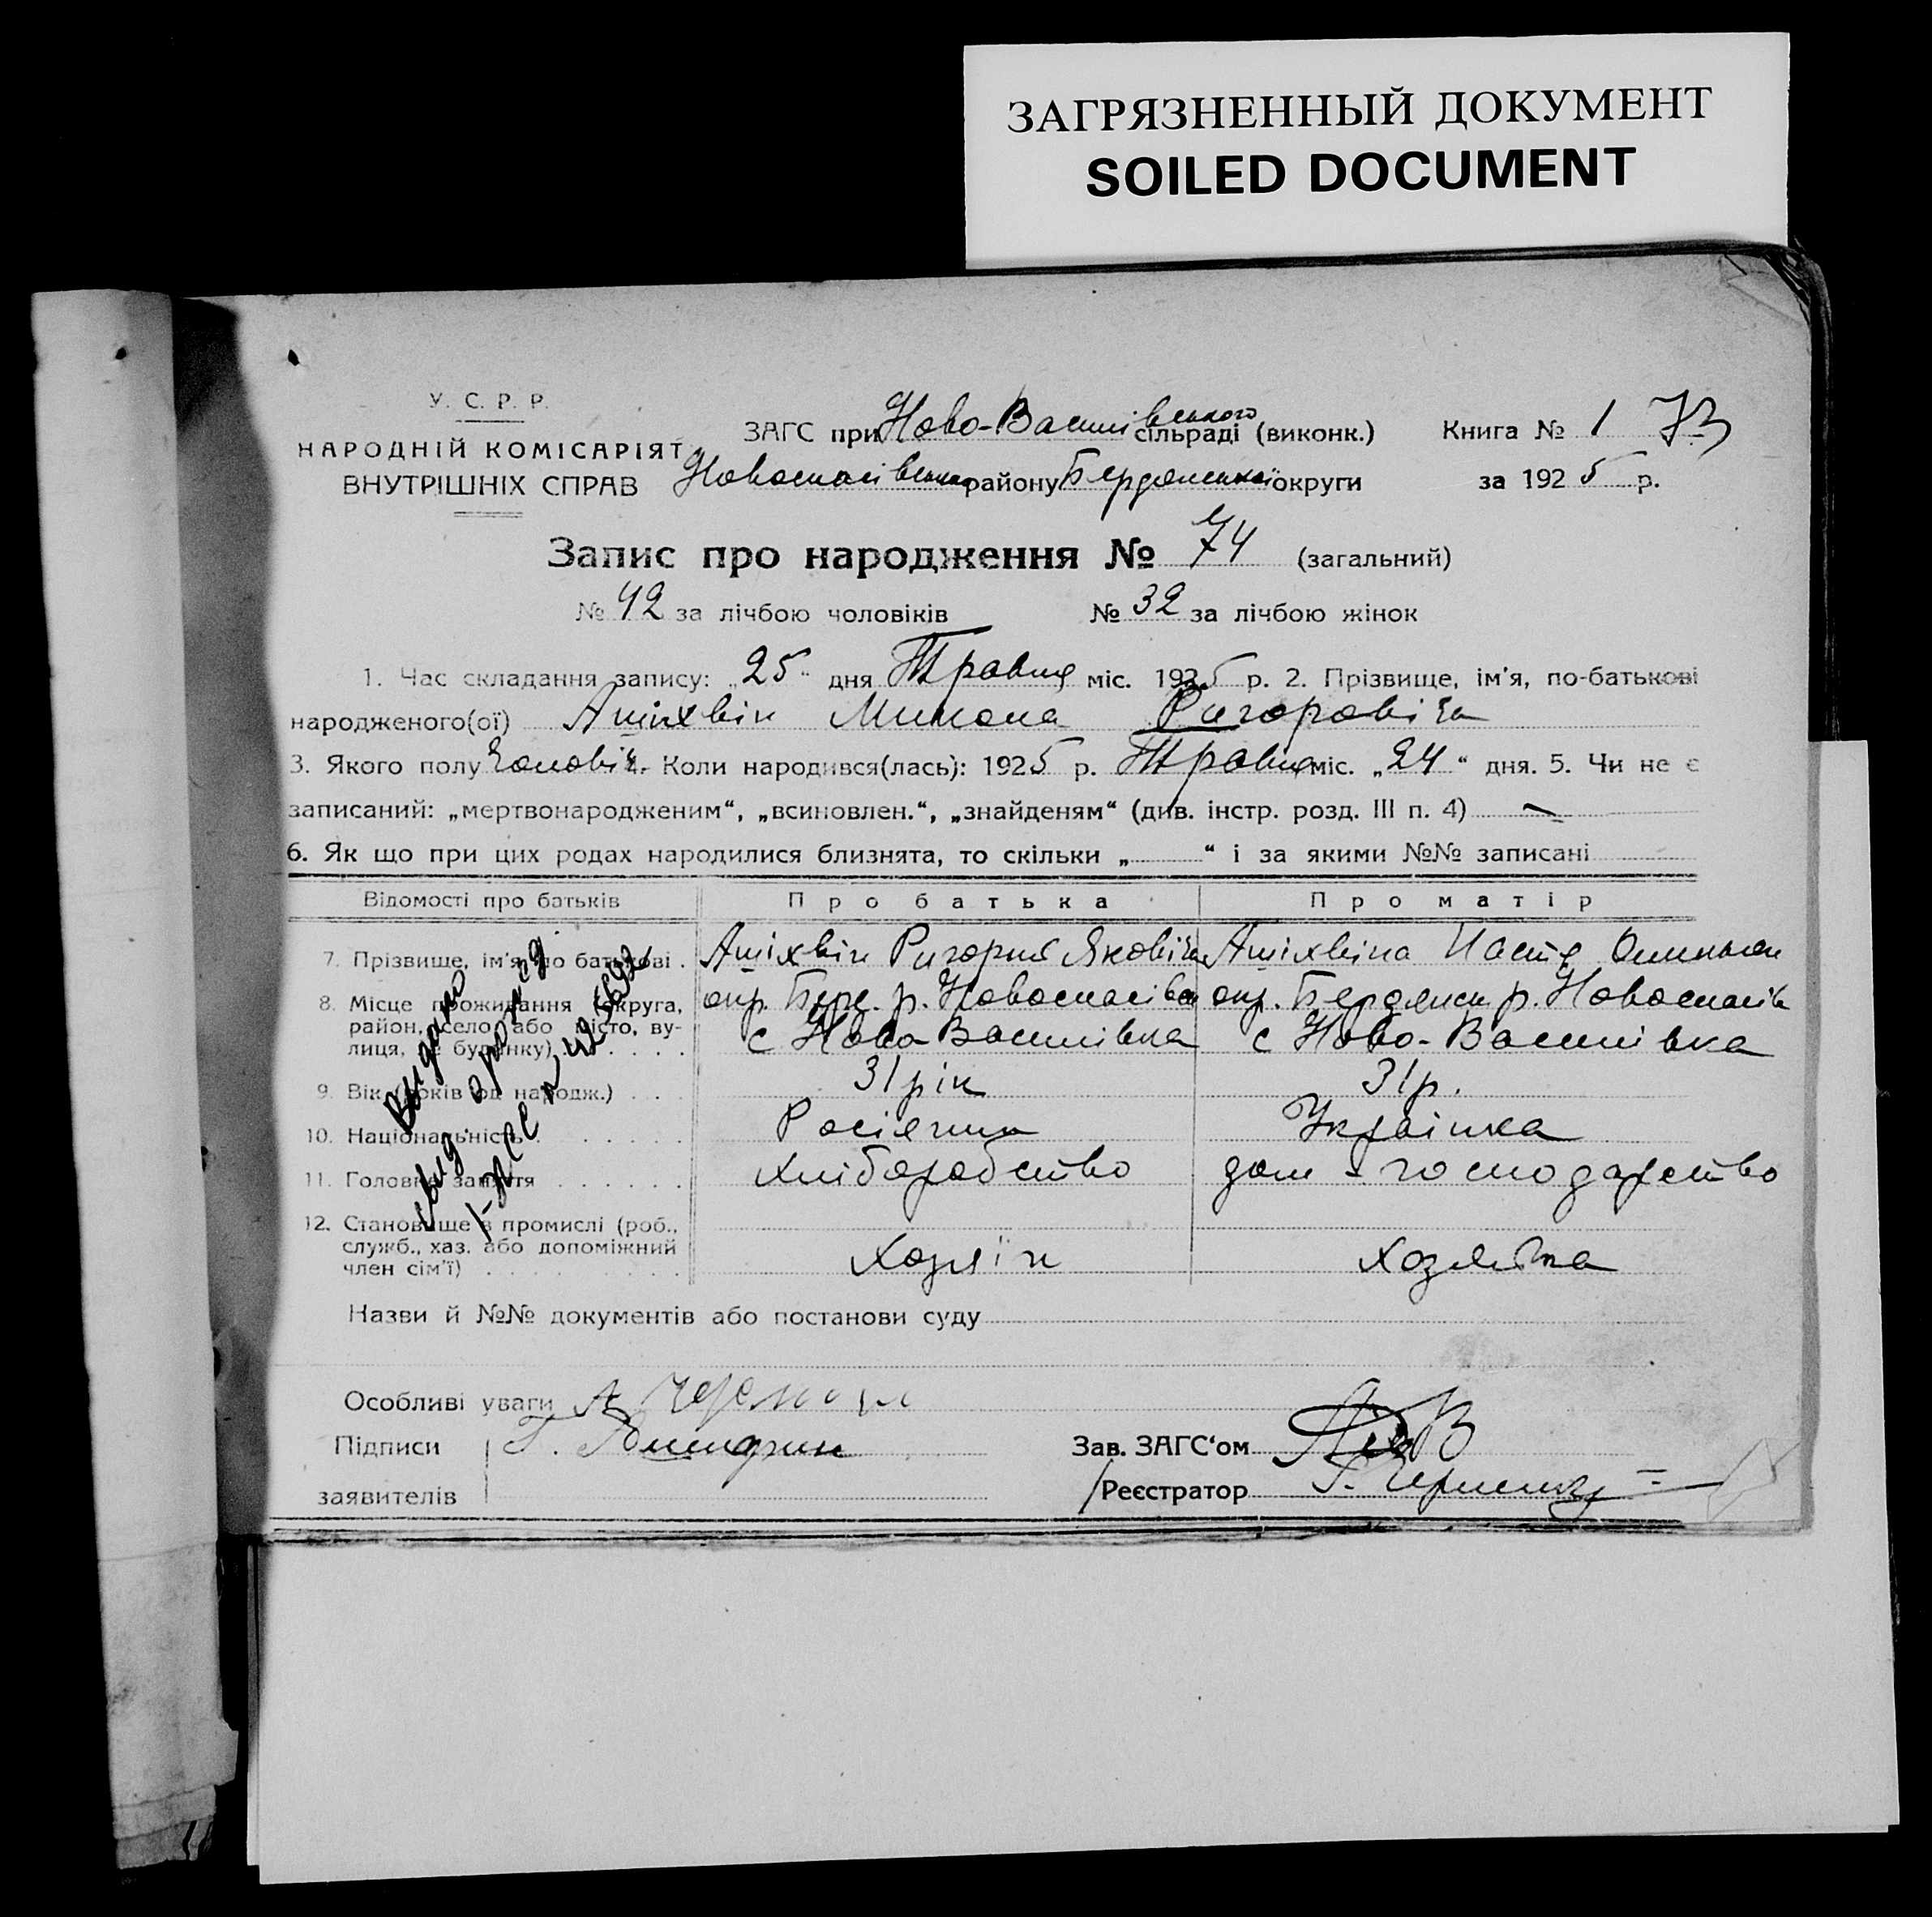 ЗАГРЯЗНЕННЫЙ ДОКУМЕНТ
SOILED DOCUMENT
У. С. Р. Р.
НАРОДНІЙ КОМІСАРІЯТ
ВНУТРІШНІХ СПРАВ
ЗАГС при Ново-Василівського сільраді (виконк.)
Новоспасівського району Бердянської округи
Книга № 1 73
за 1925 р.
Запис про народження № 74 (загальний)
№ 42 за лічбою чоловіків № 32 за лічбою жінок
1. Час складання запису: „25“ дня Травня міс. 1925 р. 2. Прізвище, ім'я, по-батькові
народженого(ої) Ріторовіча
3. Якого полу Чоловіч. 4. Коли народився(лась): 1925 р. Травня міс. „24“ дня. 5. Чи не є
записаний: „мертвонародженим“, „всиновлен.“, „знайденям“ (див. інстр. розд. III п. 4) —
6. Як що при цих родах народилися близнята, то скільки „ “ і за якими №№ записані
Відомості про батьків Про батька Про матір
7. Прізвище, ім'я, по батькові Яковіч Настя
8. Місце проживання (округа, район, село або місто, вулиця, № будинку)
окр. р. Новоспасівка окр. Бердянськ р. Новоспасівк
с Ново-Василівка с Ново-Василівка
9. Вік (років од народж.) 31 рік 31 р.
10. Національність Росіянин Українка
11. Головне заняття Хліборобство дом-господарство
12. Становище в промислі (роб., служб., хаз. або допоміжний член сім'ї) Хозяїн Хозяйка
Видано
1-АСС № 425692
Назви й №№ документів або постанови суду
Особливі уваги
Підписи
заявителів
Зав. ЗАГС‘ом
Реєстратор